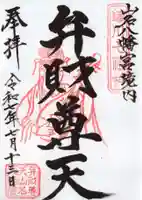 岩八幡宮境内
弁財尊天
奉拝
令和元年七月十三日